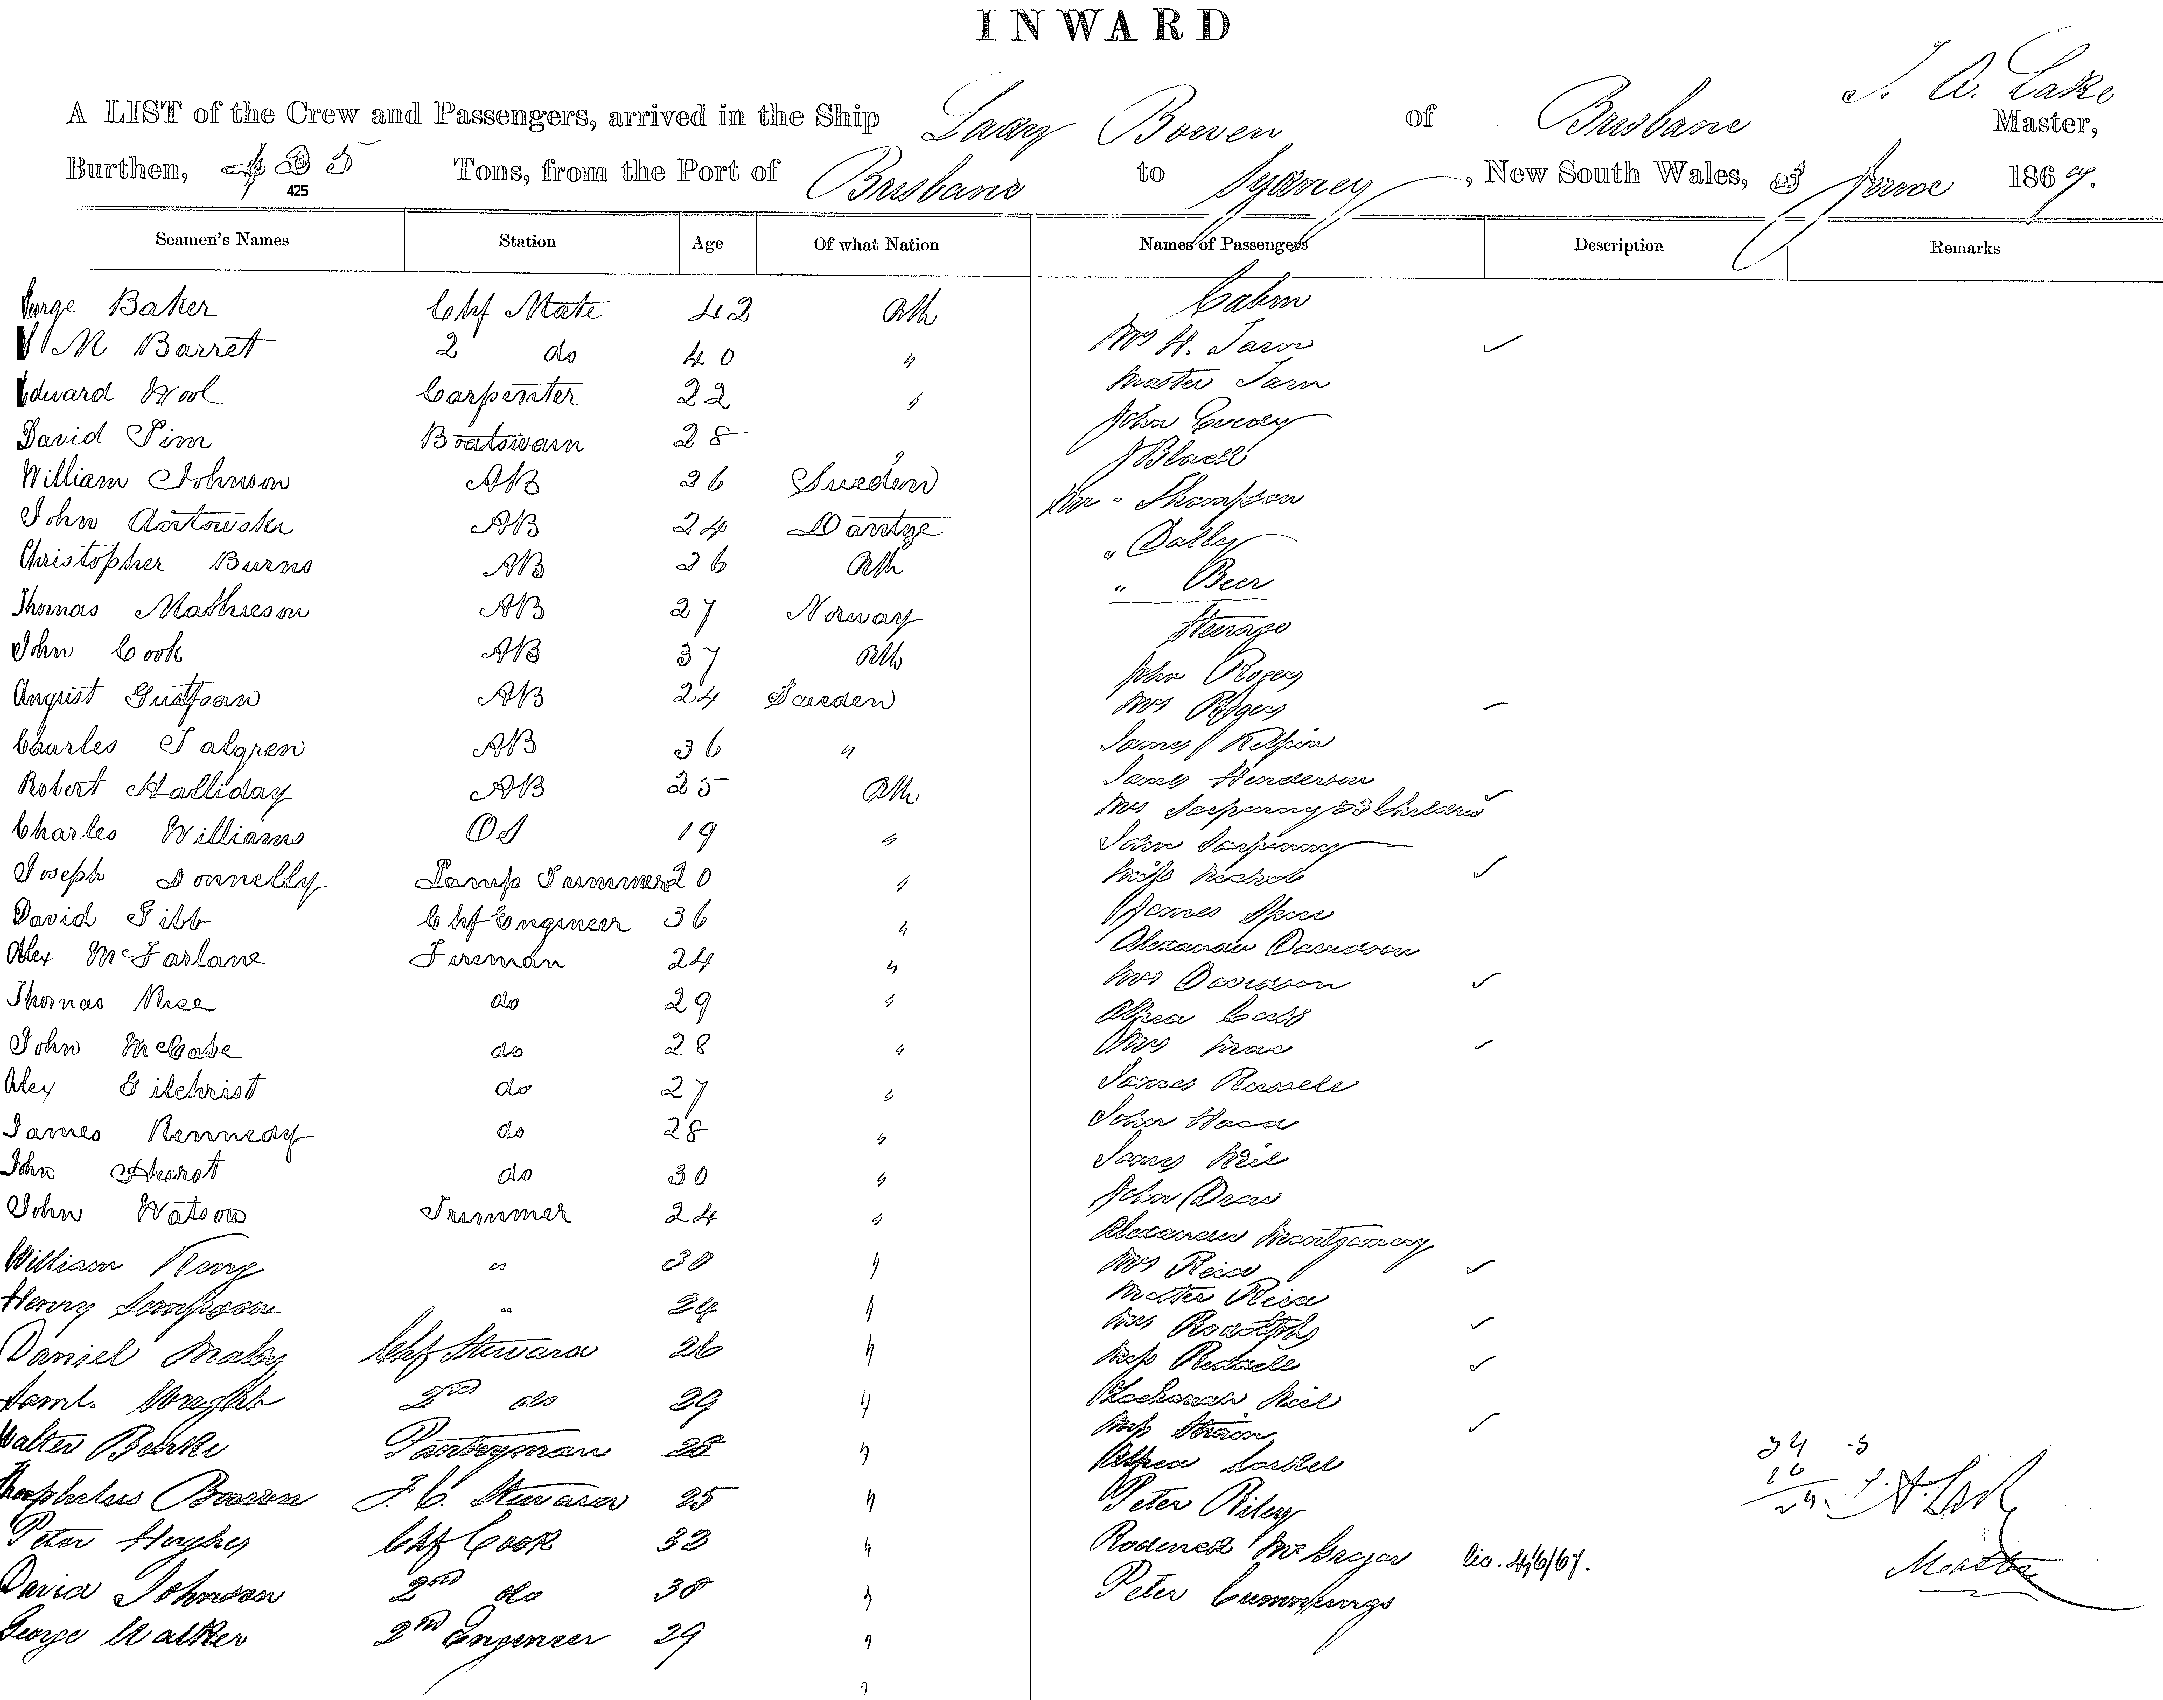 INWARD
A LIST of the Crew and Passengers, arrived in the Ship Lady Bowen of Brisbane J. A. Lake Master,
Burthen, 425 Tons, from the Port of Brisbane to Sydney, New South Wales, 3 June 1867.
425
Seamen's Names Station Age Of what Nation Names of Passengers Description Remarks
George Baker Chf Mate 42 Cabin
Barret 2 do 40 "
Edward Wool Carpenter 22 " Master
David Sim Boatswain 28 " John
William Johnson AB 26 Sweden J Black
John AB 24 Dantze Thompson
Christopher Burns AB 26 " Dalley
Thomas Mathieson AB 27 Norway " Beer
John Cook AB 37 Steerage
August Gustfson AB 24 Sweden John Rogers
Charles Talgren AB 36 " Mrs Rogers
Robert Halliday AB 25 James
Charles Williams OS 19 " James Henderson
Joseph Donnelly Lamp Trimmer 20 " Mrs & 3 Children
David Gibb Chf Engineer 36 " Miss
Alex McFarlane Fireman 24 " James
Thomas Rice do 29 " Alexander Davidson
John McCabe do 28 " Mrs Davidson
Alex Gilchrist do 27 " Mrs
James Kennedy do 28 " James Russell
John Hurst do 30 " John Hood
John Watson Trimmer 24 " James Neil
William King " 30 " John Drew
Henry Simpson " 24 " Alexander Montgomery
Daniel Maby Chf Steward 26 " Mrs Reid
Saml. Wright 2nd do 29 " Master Reid
Walter Burke Pantryman 28 " Mrs
Theophilus Bowen F. C. Steward 25 " Miss
Peter Hughes Chf Cook 32 " Neil
David Johnson 2nd do 30 " Miss
George Walker 2nd Engineer 29 "
Peter Riley
Roderick McGregor 4/6/67.
Peter Cummings
J. A. Lake
Master